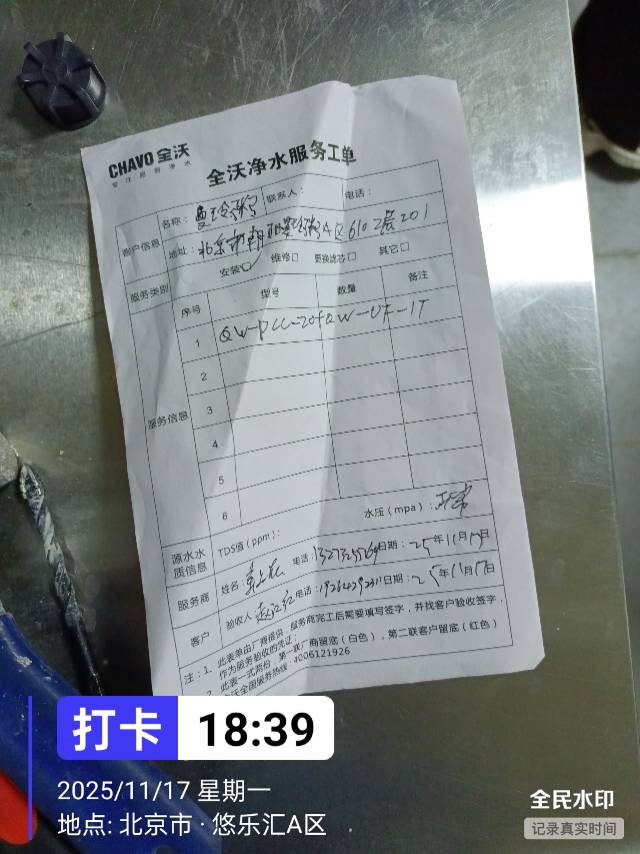 CHAVO 全沃
专注厨房净水
全沃净水服务工单
客户信息
名称：
联系人：
电话：
地址：北京市朝阳 A区610 2层201
服务类别
安装□ 维修□ 更换滤芯□ 其它□
服务信息
序号 型号 数量 备注
1 QW-DCC-20+QW-UF-1T
2
3
4
5
6
源水水质信息
TDS值（ppm）：
水压（mpa）：正常
服务商
姓名： 电话： 日期：25年11月17日
客户
验收人： 电话： 日期：25年11月17日
注：1、此表单由厂商提供，服务商完工后需要填写签字，并找客户验收签字，
作为服务验收的凭证；
2、此表一式两份，第一联厂商留底（白色），第二联客户留底（红色）
全沃全国服务热线：4006121926
打卡 18:39
2025/11/17 星期一
地点: 北京市·悠乐汇A区
全民水印
记录真实时间